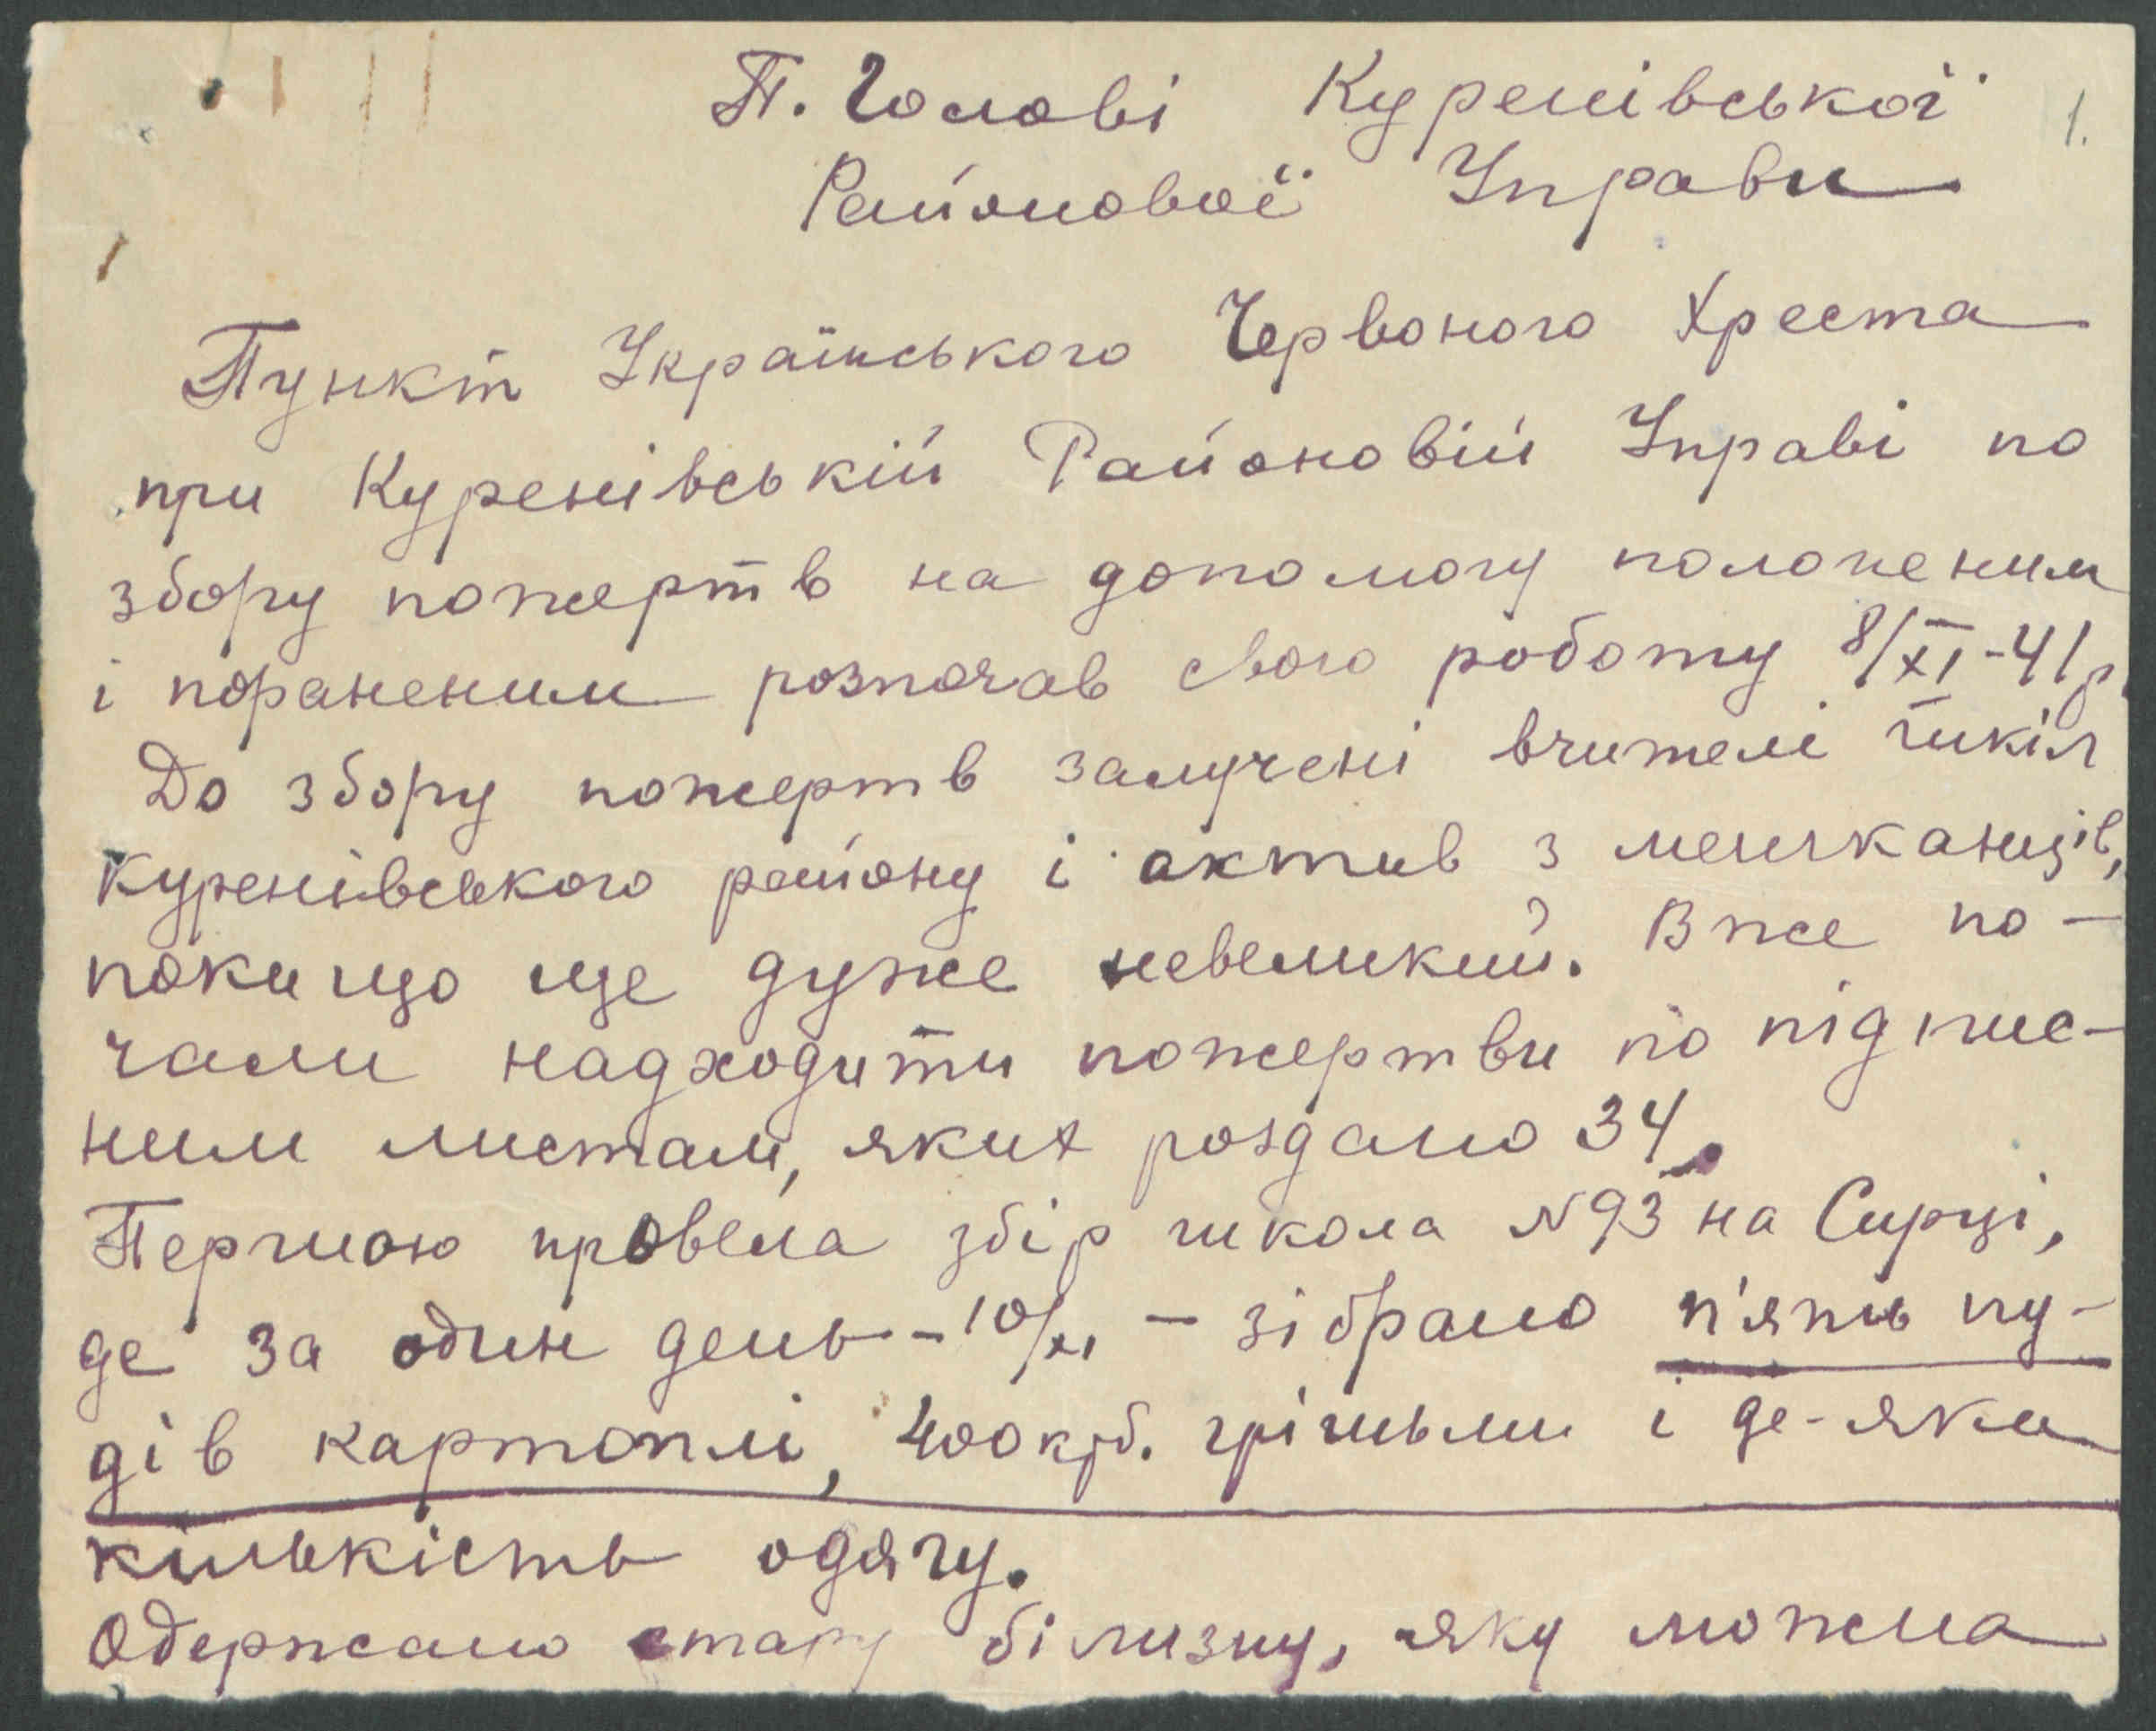 П. Голові Куренівської
1.
Районової Управи
Пункт Українського Червоного Хреста
при Куренівській Районовій Управі по
збору пожертв на допомогу полоненим
і пораненим розпочав свою роботу 8/XI-41р.
До збору пожертв залучені вчителі шкіл
Куренівського району і актив з мешканців,
поки що ще дуже невеликий. Вже по-
чали надходити пожертви по підпис-
ним листам, яких роздано 34.
Першою провела збір школа №93 на Сирці,
де за один день - 10/XI - зібрано п'ять пу-
дів картоплі, 400 крб. грішьми і де-яка
кількість одягу.
Одержано стару білизну, яку можна